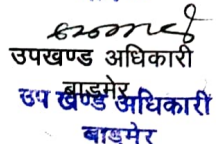 उपखण्ड अधिकारी
बाडमेर
उप खण्ड अधिकारी
बाडमेर